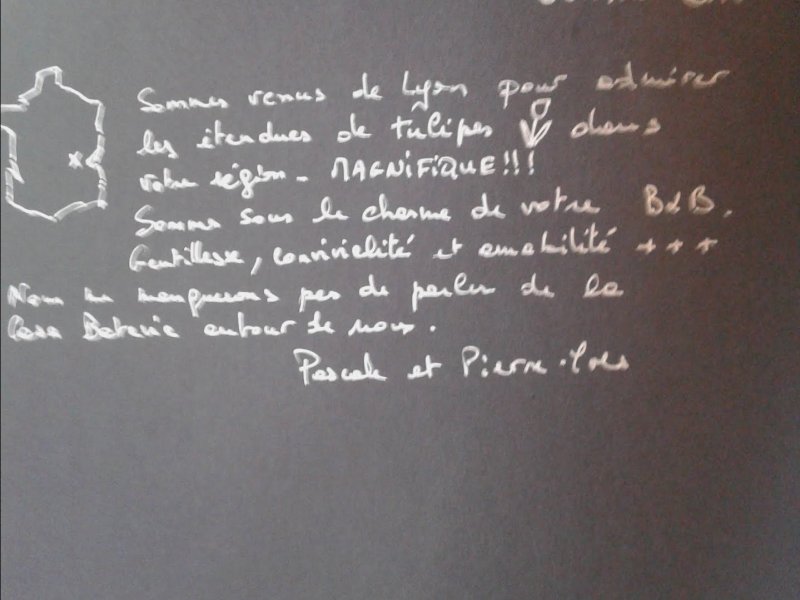 Sommes venus de Lyon pour admirer
les étendues de tulipes dans
votre région - MAGNIFIQUE!!!
Sommes sous le charme de votre B&B.
Gentillesse, convivialité et amabilité +++
Nous ne manquerons pas de parler de la
Casa Batavia autour de nous.
Pascale et Pierre-Yves